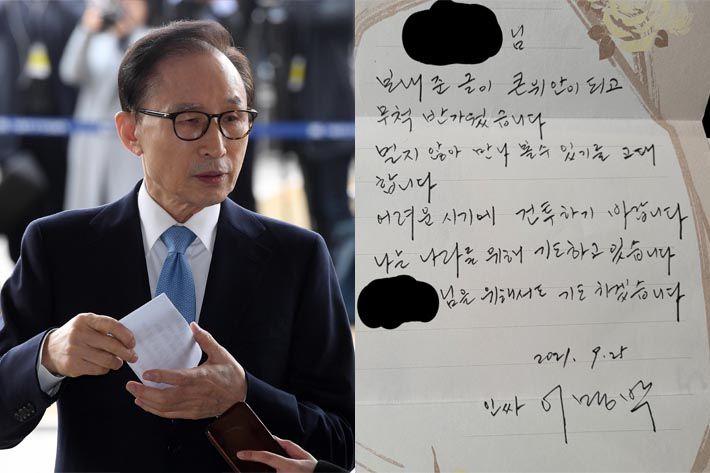 님
보내 준 글이 큰 위안이 되고
무척 반가웠습니다
멀지 않아 만나 볼 수 있기를 고대
합니다
어려운 시기에 건투하기 바랍니다
나는 나라를 위해 기도하고 있습니다
님을 위해서도 기도 하겠습니다
2021. 9. 25
이명박